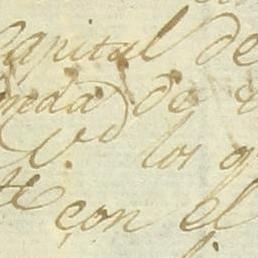 Capital de
nda de
Vd los q
te con el